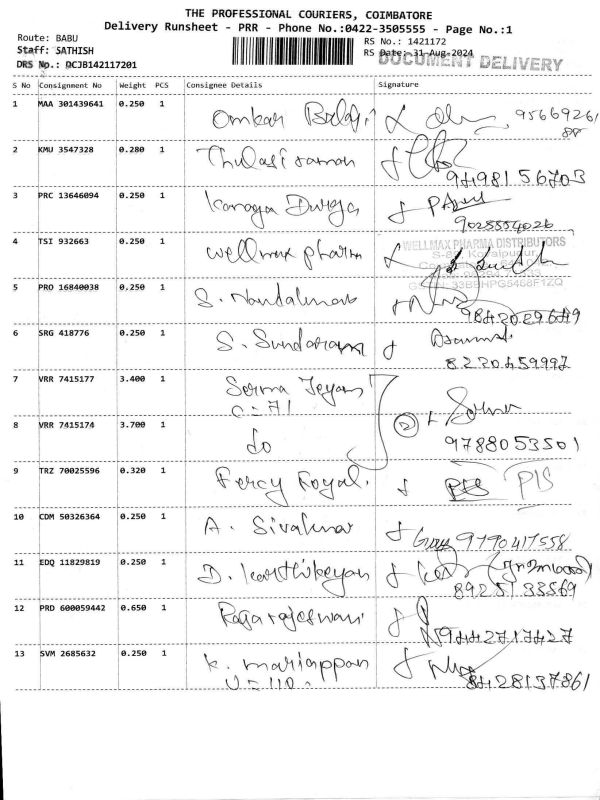 THE PROFESSIONAL COURIERS, COIMBATORE
Delivery Runsheet - PRR - Phone No.:0422-3505555 - Page No.:1
Route: BABU
RS No.: 1421172
Staff: SATHISH
RS Date: 31-Aug-2024
DOCUMENT DELIVERY
DRS No.: DCJB142117201
S No Consignment No Weight PCS Consignee Details Signature
1 MAA 301439641 0.250 1 Omkar Balaji
2 KMU 3547328 0.280 1 Thulasiraman
9498156703
3 PRC 13646094 0.250 1 Kanaga Durga
9025554026
4 TSI 932663 0.250 1 wellmax pharma
WELLMAX PHARMA DISTRIBUTORS
5 PRO 16840038 0.250 1 S. Nandakumar
9842029649
6 SRG 418776 0.250 1 S. Sundaram
8220459997
7 VRR 7415177 3.400 1 Soma
C=71
8 VRR 7415174 3.700 1 do 2
9788053501
9 TRZ 70025596 0.320 1 Fercy Royal. PIS PIS
10 CDM 50326364 0.250 1 A. Sivakumar 9790417558
11 EDQ 11829819 0.250 1 D. Karthikeyan
8925133569
12 PRD 600059442 0.650 1 Rajarajeswari
9442717427
13 SVM 2685632 0.250 1 K. mariappan
8428137861